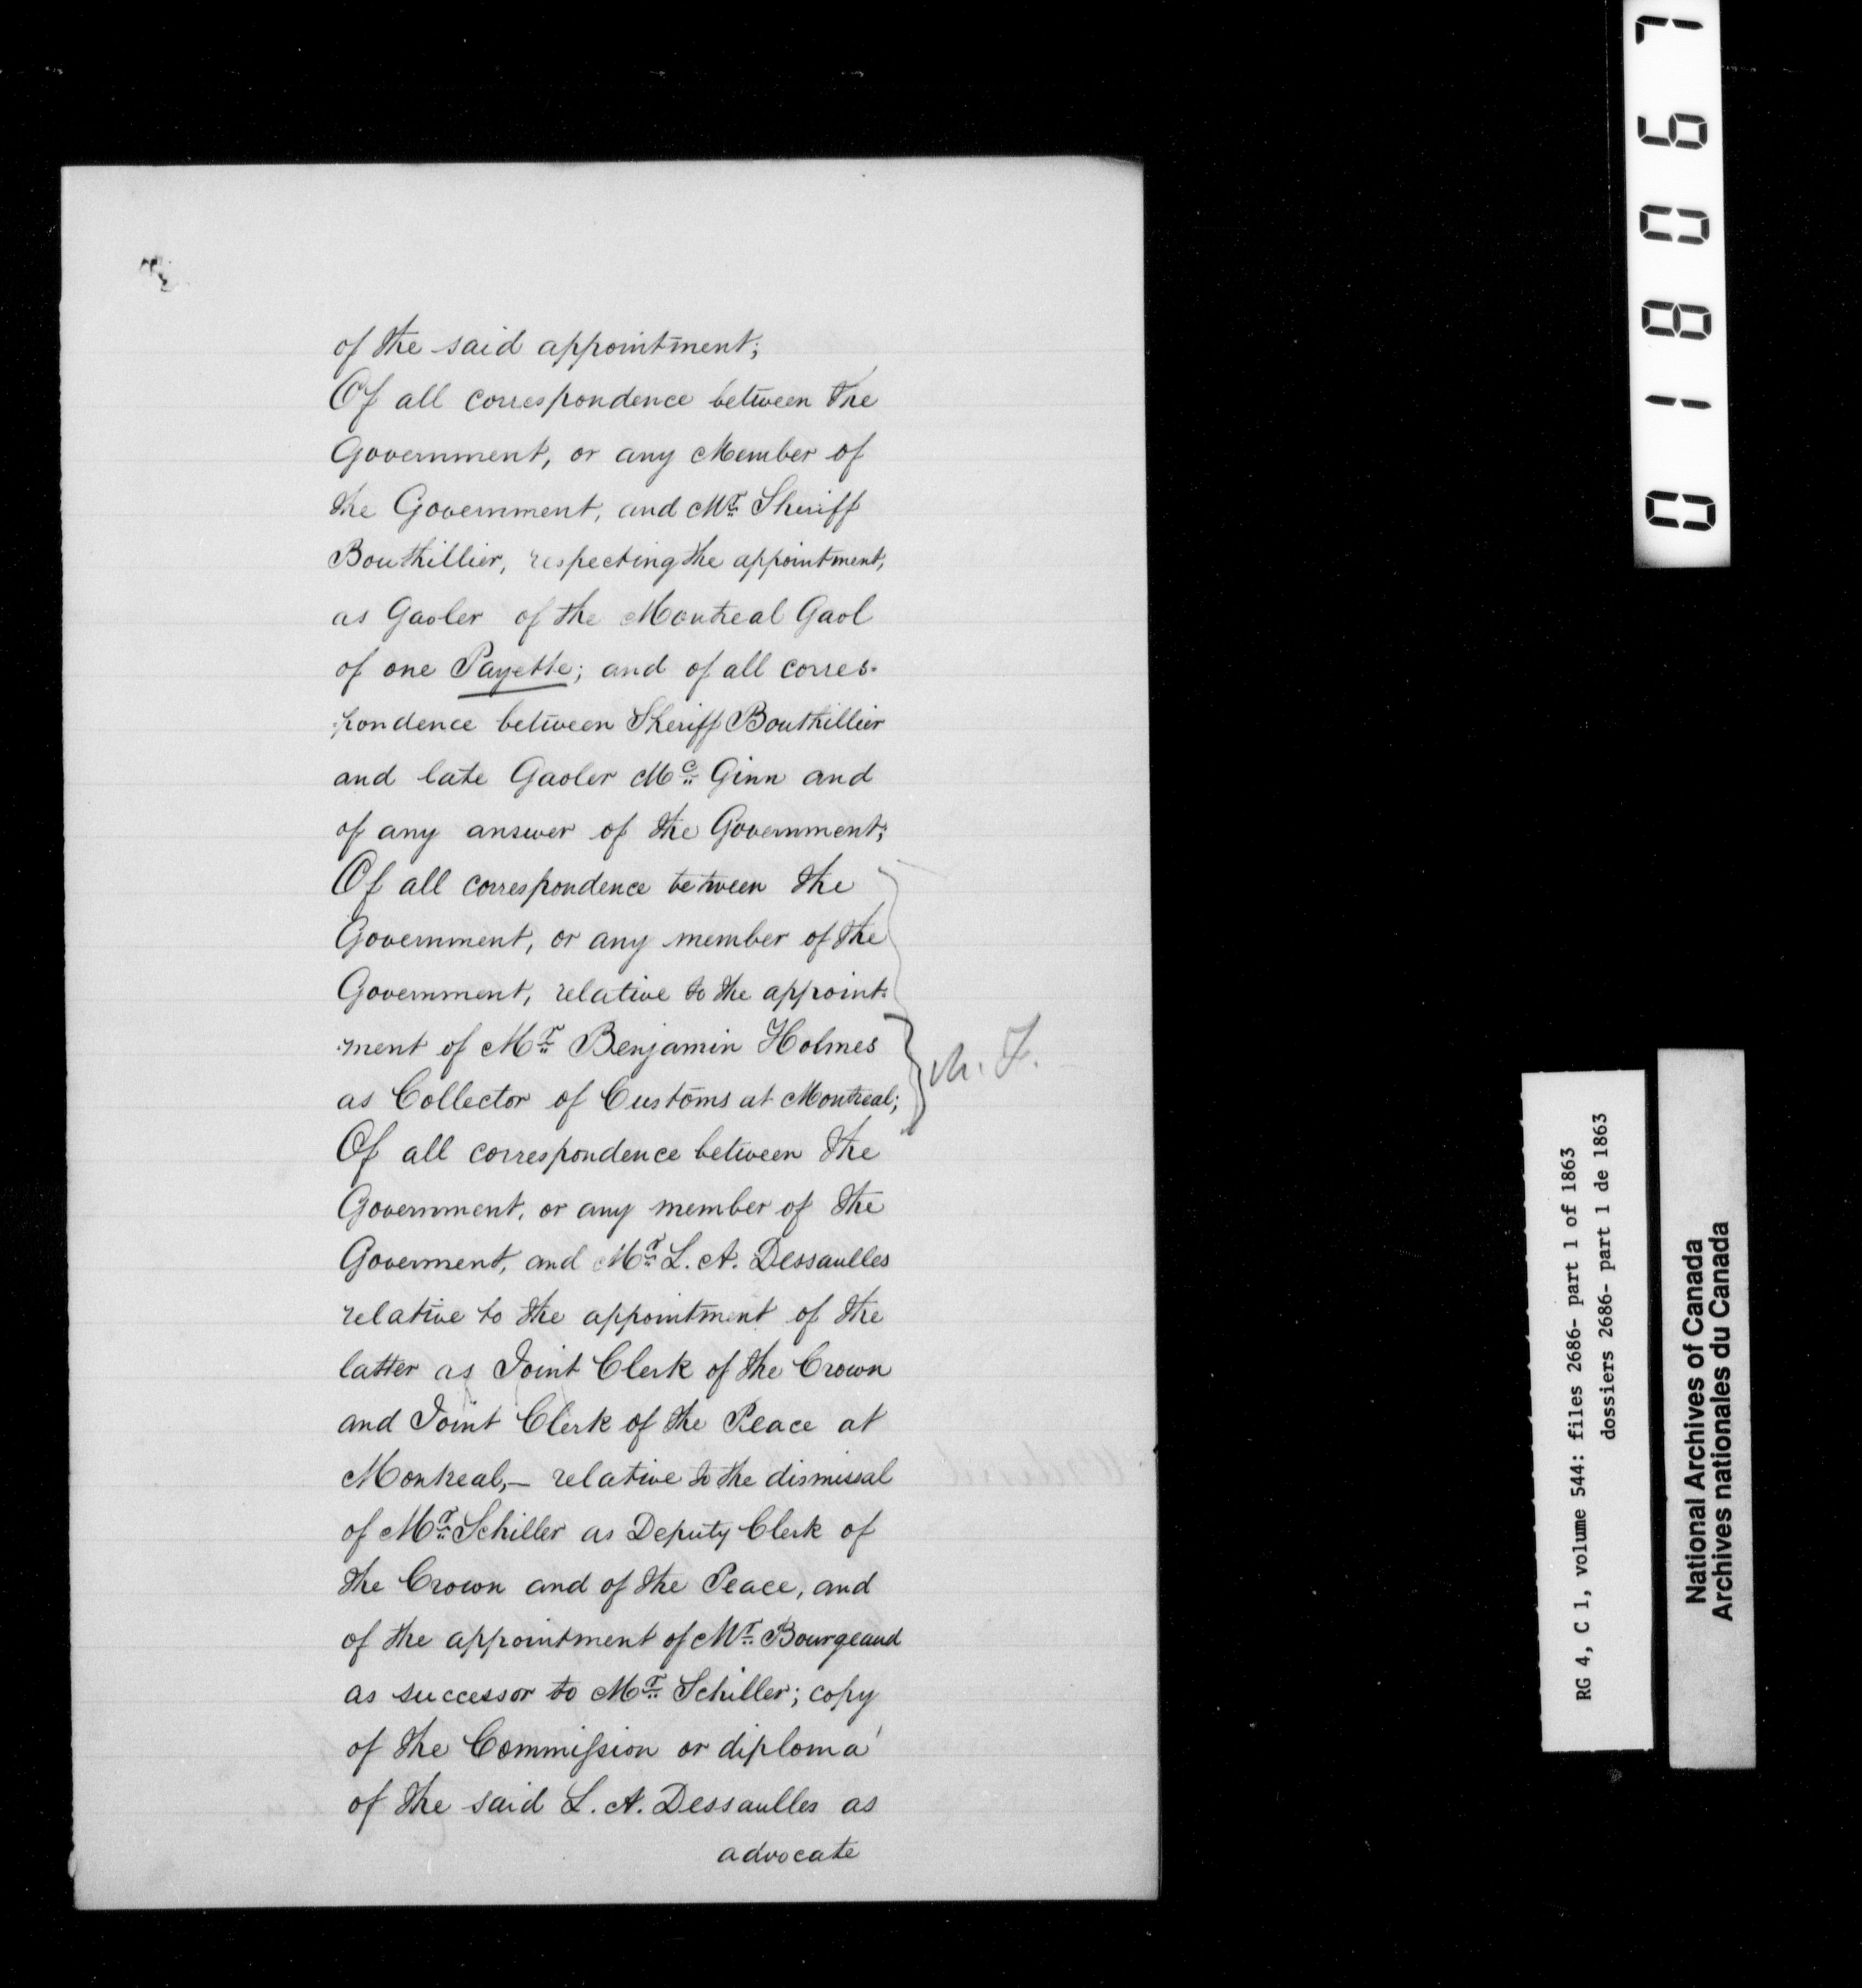 of the said appointment;
Of all correspondence between the
Government, or any Member of
the Government, and Mr. Sheriff
Bouthillier, respecting the appointment,
as Gaoler of the Montreal Gaol
of one Payette; and of all corres-
-pondence between Sheriff Bouthillier
and late Gaoler Mc Ginn and
of any answer of the Government;
Of all correspondence between the
Government, or any member of the
Government, relative to the appoint-
-ment of Mr. Benjamin Holmes
as Collector of Customs at Montreal;
Of all correspondence between the
Government, or any member of the
Goverment, and Mr. L. A. Dessaulles
relative to the appointment of the
latter as Joint Clerk of the Crown
and Joint Clerk of the Peace at
Montreal,— relative to the dismissal
of Mr. Schiller as Deputy Clerk of
the Crown and of the Peace, and
of the appointment of Mr. Bourgeaud
as successor to Mr. Schiller; copy
of the Commission or diploma
of the said L. A. Dessaulles as
advocate
018067
RG 4, C 1, volume 544: files 2686- part 1 of 1863
dossiers 2686- part 1 de 1863
National Archives of Canada
Archives nationales du Canada